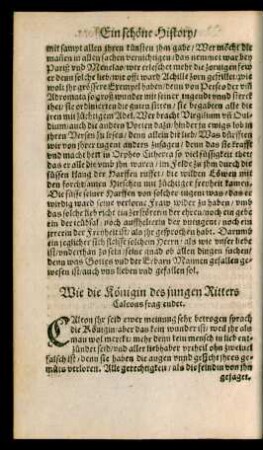 Ein schöne History/
mit sampt allen jhren künsten jhn gabe/ Wer möcht die
mansten in allen sachen vernichtigen/ das nemmet war bey
Pariß vnd Menelao wer erleschet mehr die zornigen sew
er denn solche lieb/ wie offt ward Achilli zorn gestillet/ wie
wolt jhr grössere Exempel haben/ denn von Perseo der
so groß wunder mit seiner tugendt vnd sterck
thet/ sie ordinieren die guten sitten/ sie begabten alle die
jren mit züchtigem Adel. Wer bracht Virgilium vñ Oui-
dium/ auch die andern Poeten dazu/ hinder in ewigs lob in
jhren Versen zulassen/ denn allein die lieb/ Was dürfften
wir von jhrer tugent anders zusagen/ denn das sie krafft
vnd macht hett in Orpheo Citherea so viel süssigkeit thet/
das er alle die vmb jhn waren/ im Felde zu jhm durch den
süssen klang der Harffen rüffet/ die wilden Löwen mit
den forchtsamen Hirschen mit züchtiger freyheit kamen.
Die süsse seiner Harffen von solcher tugent was/ das er
wirdig ward seine verlorne Fraw wider zu haben/ vnd
das solche lieb nicht ein zerstörerin der ehren/ noch ein gebe
rin der trübsal/ noch auffhalterin der peiniger/ noch ein
jrrerin der Freyheit ist/ als jhr gesprochen habt. Darumb
ein jeglicher sich fleisse solchem Herrn/ als wie vnser liebe
ist/ vnderthan zu sein/ seine gnad ob allen dingen suchen/
denn was Götten vnd der Erbarn Mannen gefallen ge-
wesen ist/ auch vns lieben vnd gefallen sol.
Wie die Königin des jungen Ritters
Caleons frag endet.
CAleon jhr seid ewer meinung sehr betrogen sprach
die Königin/ aber das kein wunder ist/ weil jhr als
man wol merckt/ mehr denn kein mensch in lieb ent-
zündet seid/ vnd aller liebhaber vrtheil ohn zweiuel
falsch ist/ denn sie haben die augen vnnd gesicht jhres ge-
müts verloren. Alle gerechtigkeit/ als die feindin von jhn
gejaget.